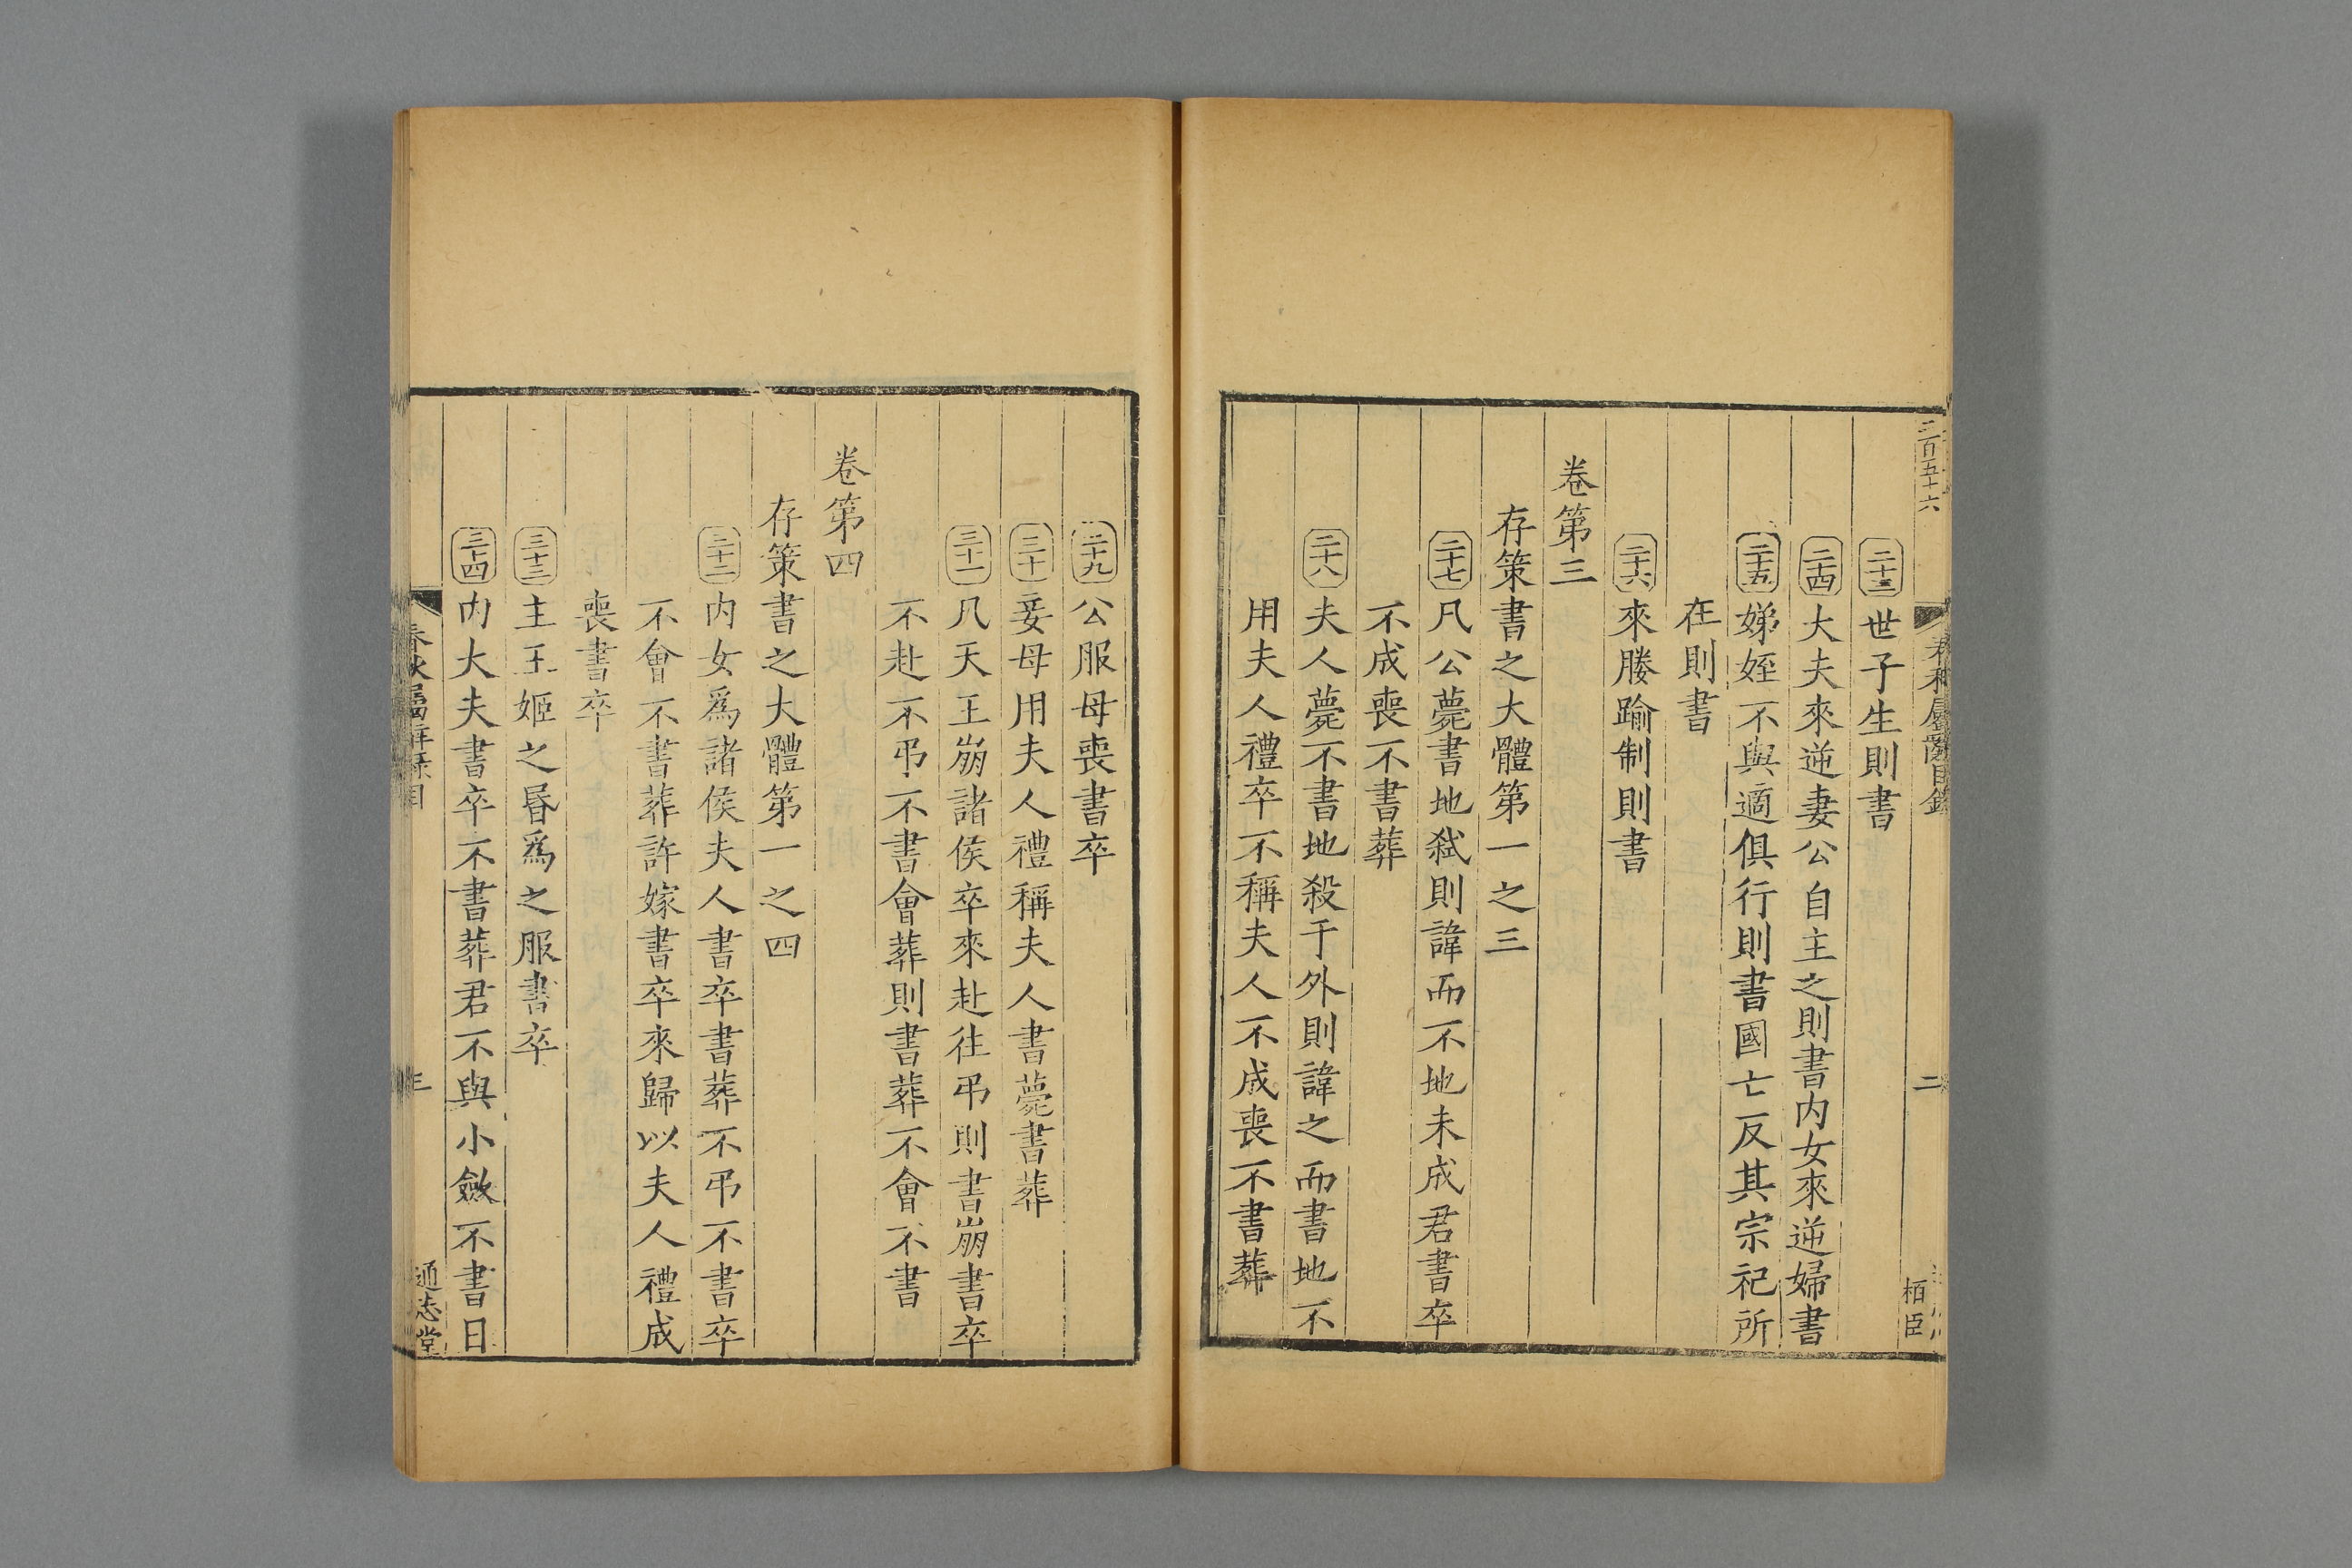 二百五十六
春秋屬辭目錄
二
栢臣
二十三世子生則書
二十四大夫來逆妻公自主之則書内女來逆婦書
二十五娣姪不與適俱行則書國亡反其宗祀所
在則書
二十六來媵踰制則書
卷第三
存策書之大體第一之三
二十七凡公薨書地弑則諱而不地未成君書卒
不成喪不書葬
二十八夫人薨不書地殺于外則諱之而書地不
用夫人禮卒不稱夫人不成喪不書葬
二十九公服母喪書卒
三十妾母用夫人禮稱夫人書薨書葬
三十一凡天王崩諸侯卒來赴往弔則書崩書卒
不赴不弔不書會葬則書葬不會不書
卷第四
存策書之大體第一之四
三十二内女爲諸侯夫人書卒書葬不弔不書卒
不會不書葬許嫁書卒來歸以夫人禮成
喪書卒
三十三主王姬之昬爲之服書卒
三十四内大夫書卒不書葬君不與小斂不書日
春秋屬辭目
三
通志堂